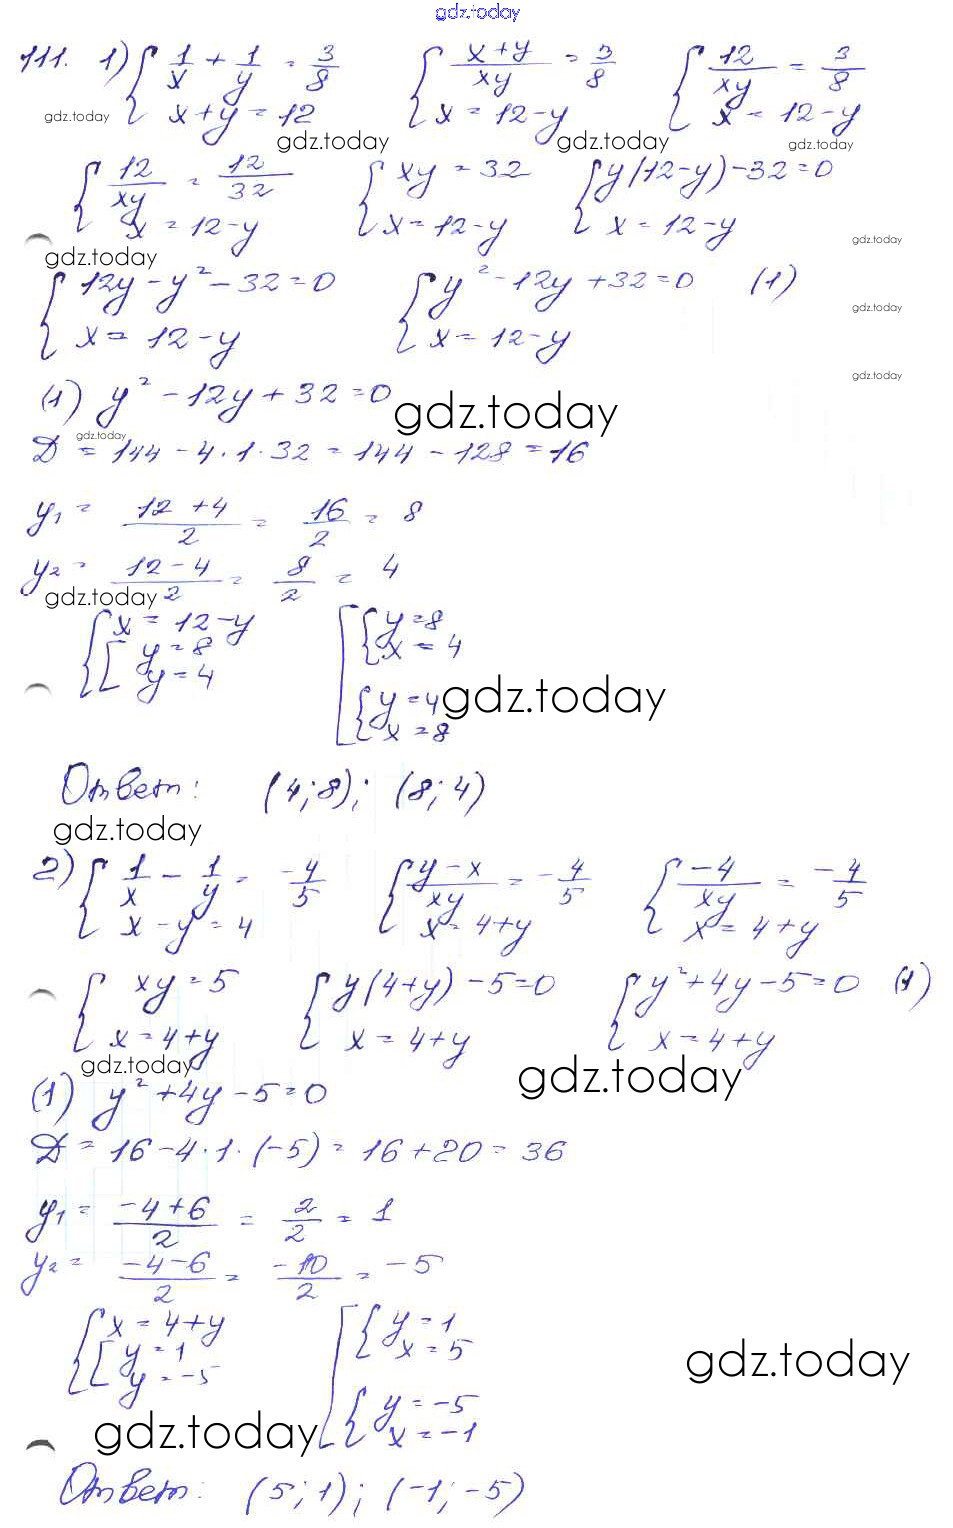 gdz.today
111. 1) { 1/x + 1/y = 3/8 { (x+y)/xy = 3/8 { 12/xy = 3/8
x+y=12 x=12-y x=12-y
gdz.today gdz.today gdz.today gdz.today
{ 12/xy = 12/32 { xy=32 { y(12-y)-32=0
x=12-y x=12-y x=12-y
gdz.today gdz.today
{ 12y-y²-32=0 { y²-12y+32=0 (1)
x=12-y x=12-y
gdz.today
gdz.today
(1) y²-12y+32=0
gdz.today
gdz.today
Д=144-4·1·32=144-128=16
y₁ = (12+4)/2 = 16/2 = 8
y₂ = (12-4)/2 = 8/2 = 4
gdz.today
{ x=12-y [ { y=8
[ y=8 x=4
y=4 { y=4
x=8
gdz.today
Ответ: (4;8); (8;4)
gdz.today
2) { 1/x - 1/y = -4/5 { (y-x)/xy = -4/5 { -4/xy = -4/5
x-y=4 x=4+y x=4+y
{ xy=5 { y(4+y)-5=0 { y²+4y-5=0 (1)
x=4+y x=4+y x=4+y
gdz.today gdz.today
(1) y²+4y-5=0
Д=16-4·1·(-5)=16+20=36
y₁ = (-4+6)/2 = 2/2 = 1
y₂ = (-4-6)/2 = -10/2 = -5
{ x=4+y [ { y=1
[ y=1 x=5
y=-5 { y=-5
x=-1
gdz.today
gdz.today
Ответ: (5;1); (-1;-5)